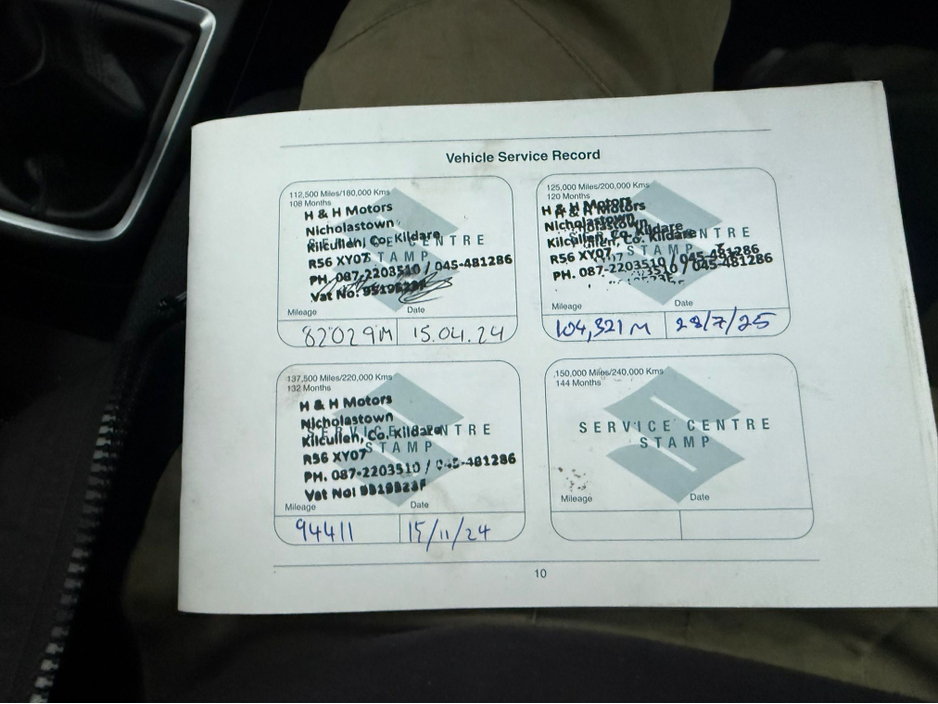 Vehicle Service Record
112,500 Miles/180,000 Kms
108 Months
H & H Motors
Nicholastown
Kilcullen, Co. Kildare
R56 XY07
PH. 087-2203510 / 045-481286
Vat No:
SERVICE CENTRE
STAMP
Mileage Date
82029M 15.04.24
125,000 Miles/200,000 Kms
120 Months
H & H Motors
Nicholastown
Kilcullen, Co. Kildare
R56 XY07
PH. 087-2203510 / 045-481286
SERVICE CENTRE
STAMP
Mileage Date
104,321 M 28/7/25
137,500 Miles/220,000 Kms
132 Months
H & H Motors
Nicholastown
Kilcullen, Co. Kildare
R56 XY07
PH. 087-2203510 / 045-481286
Vat No:
SERVICE CENTRE
STAMP
Mileage Date
94411 15/11/24
150,000 Miles/240,000 Kms
144 Months
SERVICE CENTRE
STAMP
Mileage Date
10